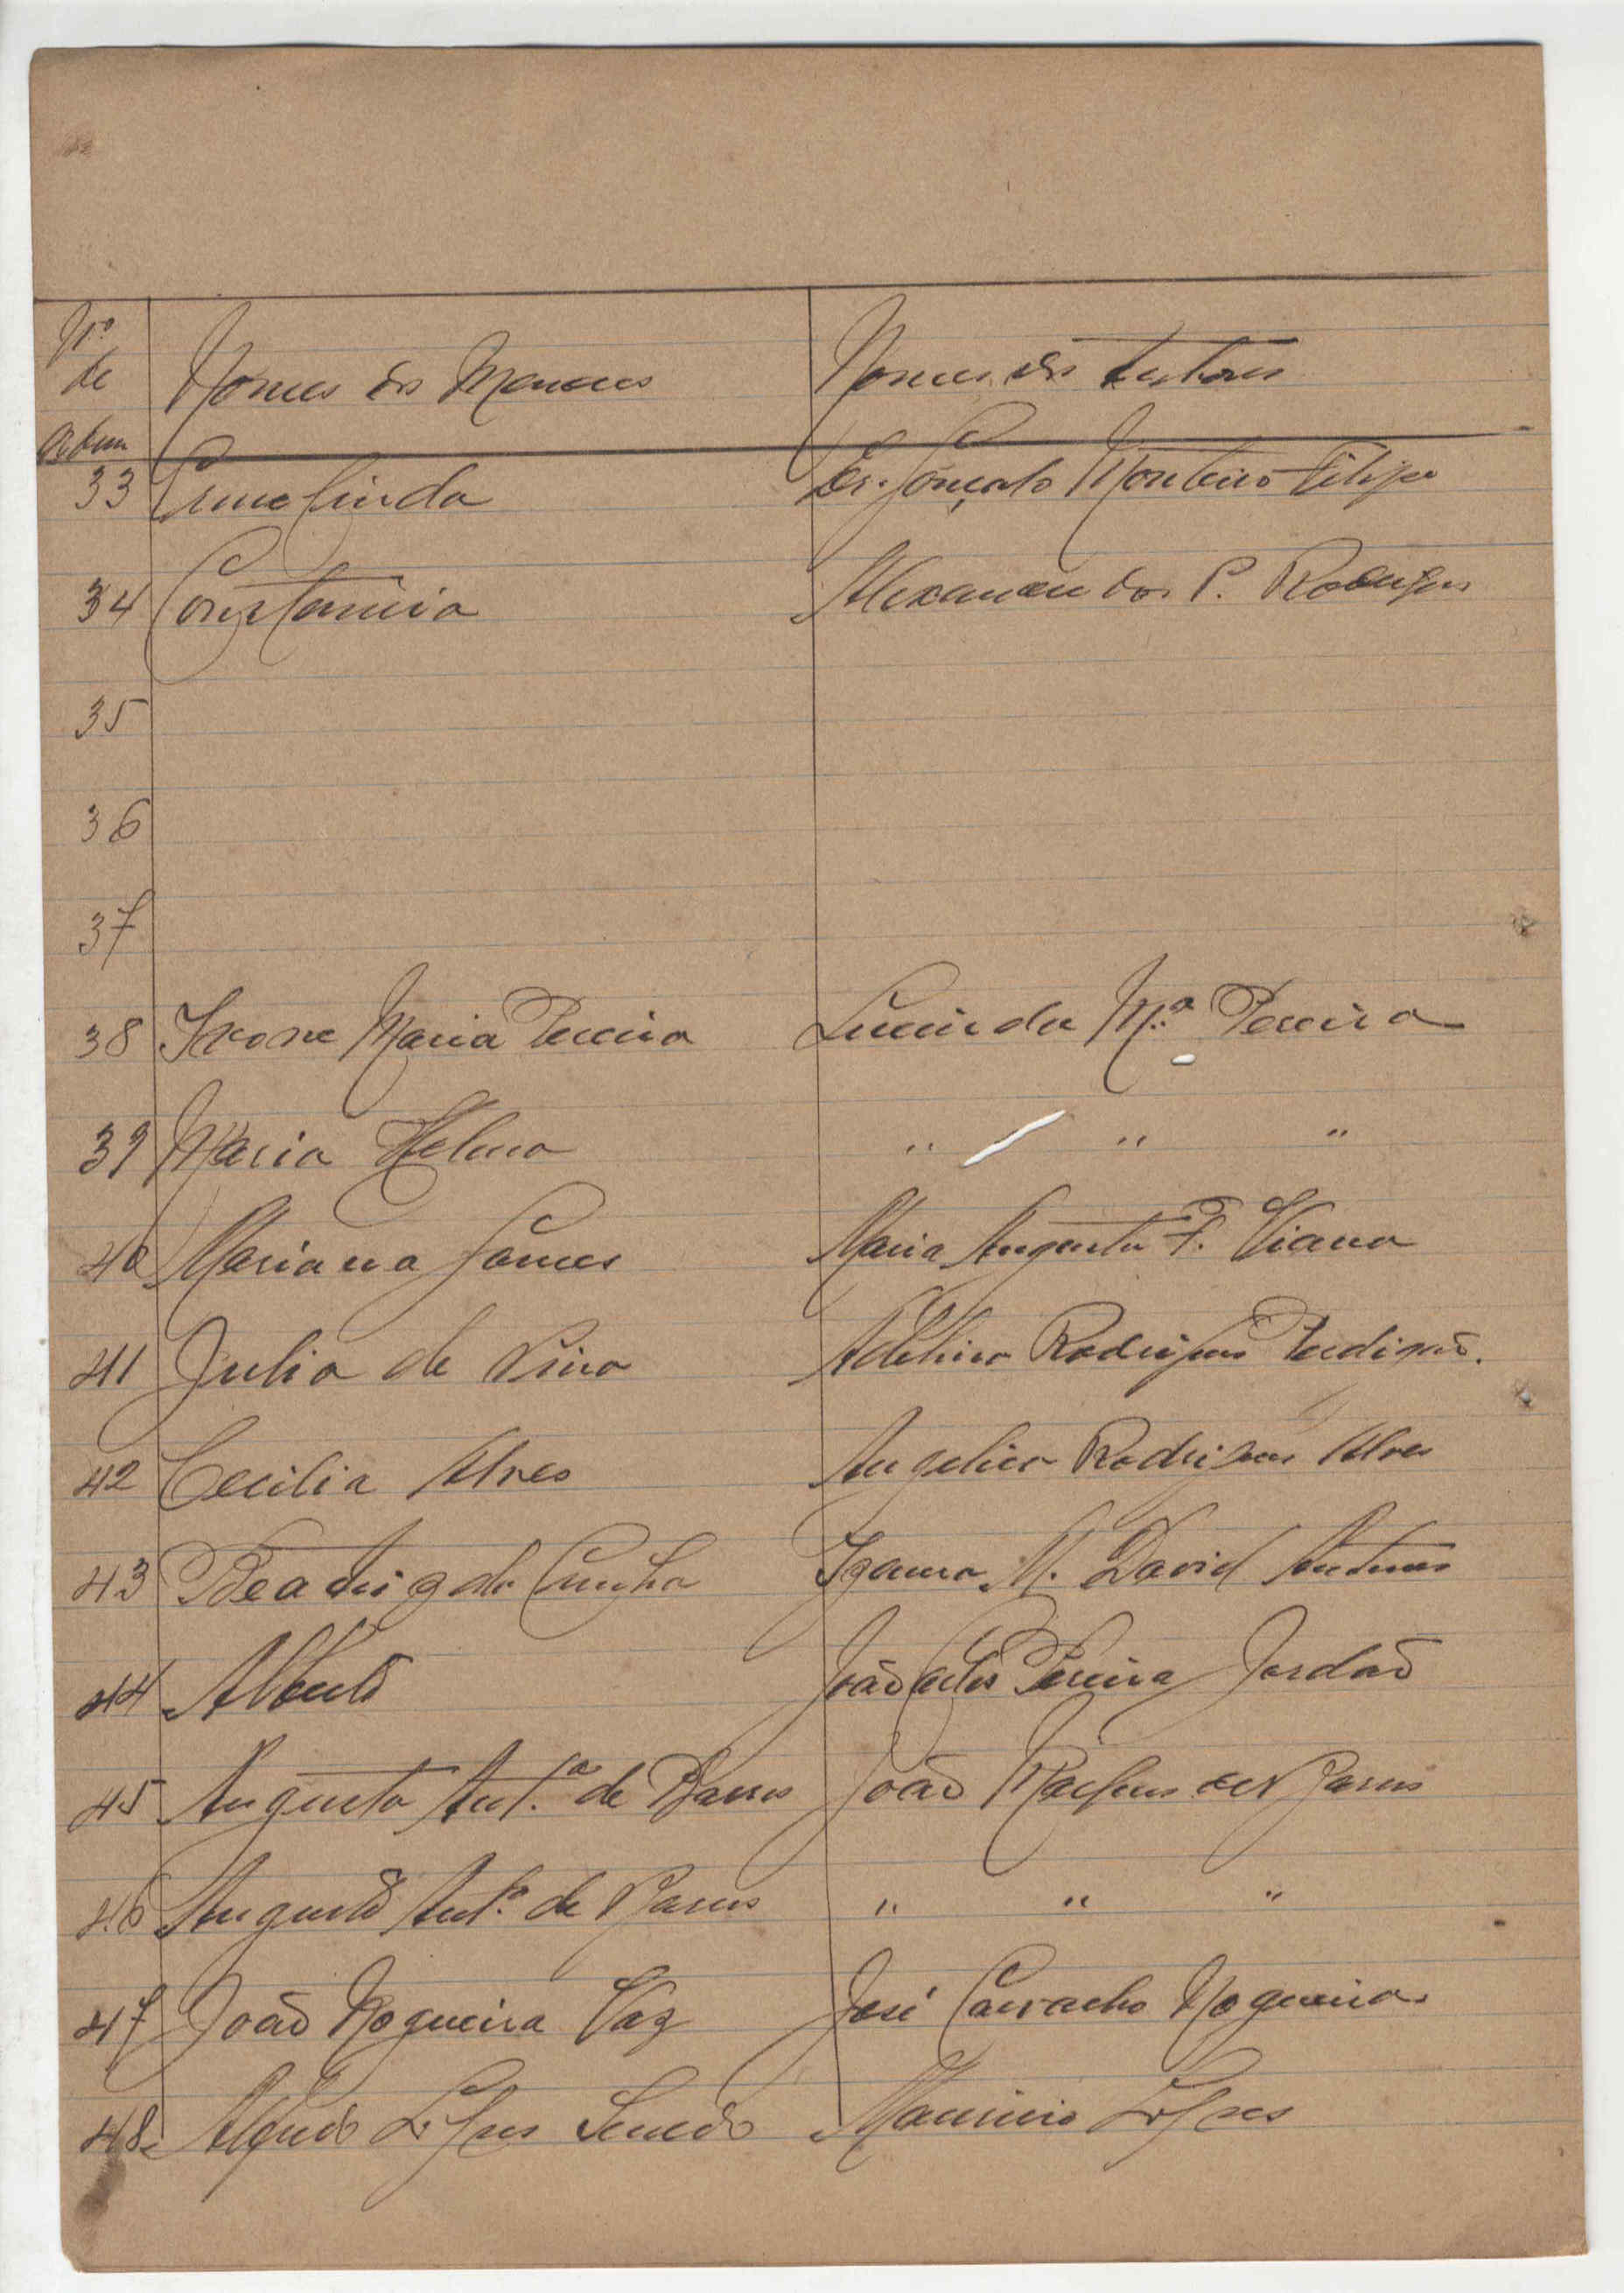 Nº
de
ordem
Nomes dos Menores
Nomes dos tutores
33 Ermelinda Dr. Gonçalo Monteiro Filipe
34 Constancia Alexandre dos P. Rodrigues
35
36
37
38 Ivone Maria Pereira Lucinda M.ª Pereira
39 Maria Helena " " "
40 Mariana Gomes Maria Augusta F. Viana
41 Julia de Rodrigues Perdigão.
42 Cecilia Alves Angelica Rodrigues Alves
43 Beatriz da Cunha Izaura M. David Antunes
44 Alberto João Carlos Pereira Jordão
45 Augusta Ant.ª de Barros João Matheus de Barros
46 Augusto Ant.º de Barros " " "
47 João Nogueira Vaz José Carvalho Nogueira
48 Alfredo Lopes Mauricio Lopes